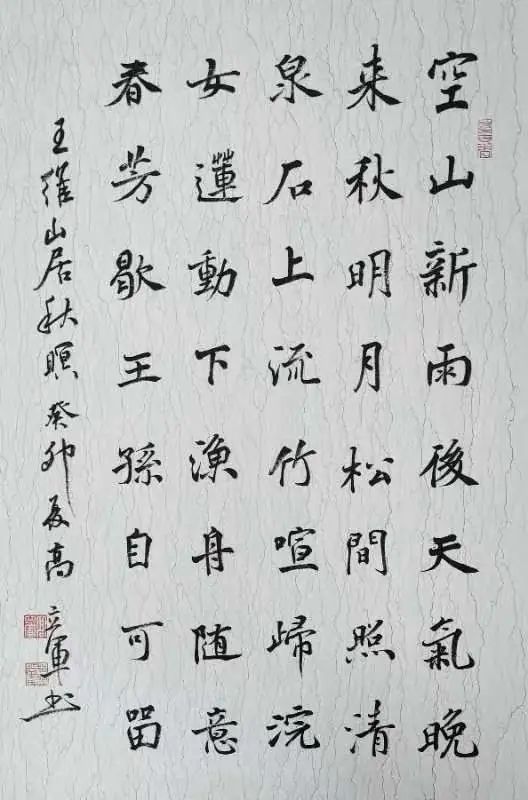 空山新雨後天氣晚
来秋明月松間照清
泉石上流竹喧歸浣
女蓮動下漁舟随意
春芳歇王孫自可留
王維山居秋暝癸卯夏高立軍书